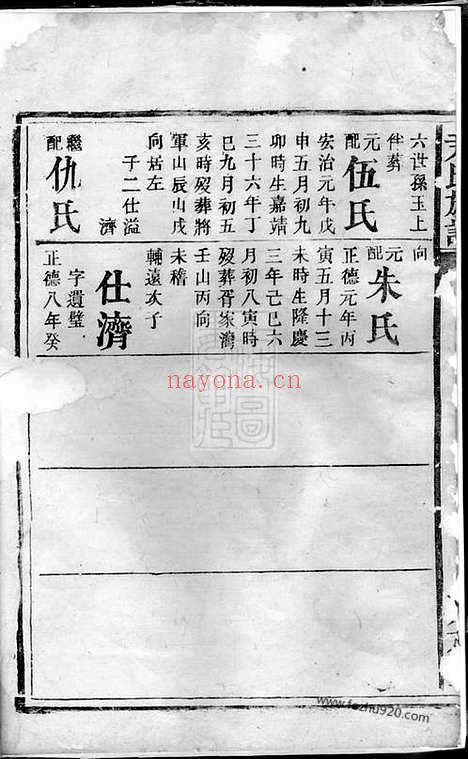 六世孫玉上
伴葬
元配伍氏
安治元年戊
申五月初九
卯時生嘉靖
三十六年丁
巳九月初五
亥時歿葬將
軍山辰山戌
向居左
子二仕溢
濟
繼配仇氏
向
元配朱氏
正德元年丙
寅五月十三
未時生隆慶
三年己巳六
月初八寅時
歿葬胥家灣
壬山丙向
未稽
輔遠次子
仕濟
字遺璧
正德八年癸
nayona.cn
www.fozhu920.com